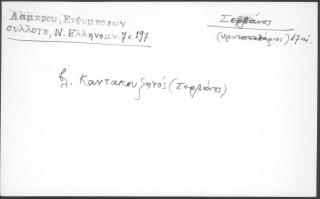 Λάμπρου, Ενθυμήσεων
συλλογή, Ν. Ελληνομν. 7 σ. 197
Σερβάνος
(πρωτοσπαθάριος) 17 αἰ.
βλ. Καντακουζηνός (Σερβάνος)